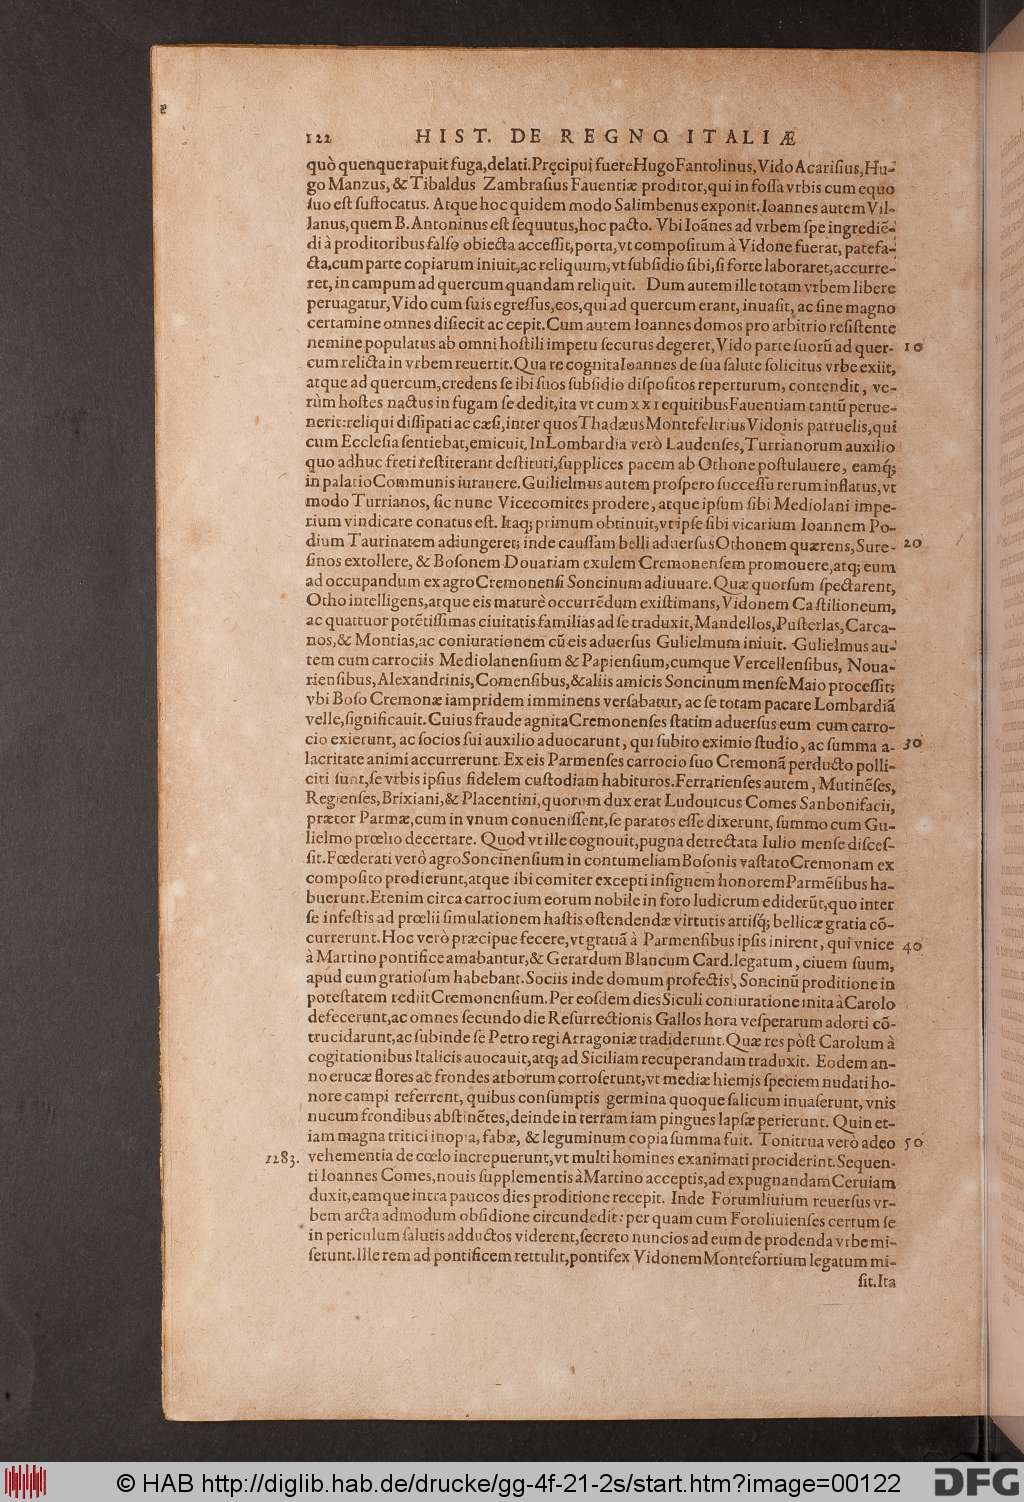 122 HIST. DE REGNO ITALIÆ
quò quenque rapuit fuga, delati. Pręcipui fuere Hugo Fantolinus, Vido Acarisius, Hu-
go Manzus, & Tibaldus Zambrasius Fauentiæ proditor, qui in fossa vrbis cum equo
suo est suffocatus. Atque hoc quidem modo Salimbenus exponit. Ioannes autem Vil-
lanus, quem B. Antoninus est sequutus, hoc pacto. Vbi Ioānes ad vrbem spe ingrediē-
di à proditoribus falso obiecta accessit, porta, vt compositum à Vidone fuerat, patefa-
cta, cum parte copiarum iniuit, ac reliquum, vt subsidio sibi, si forte laboraret, accurre-
ret, in campum ad quercum quandam reliquit. Dum autem ille totam vrbem libere
peruagatur, Vido cum suis egressus, eos, qui ad quercum erant, inuasit, ac sine magno
certamine omnes disiecit ac cepit. Cum autem Ioannes domos pro arbitrio resistente
nemine populatus ab omni hostili impetu securus degeret, Vido parte suorū ad quer- 10
cum relicta in vrbem reuertit. Qua re cognita Ioannes de sua salute solicitus vrbe exiit,
atque ad quercum, credens se ibi suos subsidio dispositos reperturum, contendit, ve-
rùm hostes nactus in fugam se dedit, ita vt cum xxi equitibus Fauentiam tantū perue-
nerit: reliqui dissipati ac cæsi, inter quos Thadæus Montefeltrius Vidonis patruelis, qui
cum Ecclesia sentiebat, emicuit. In Lombardia verò Laudenses, Turrianorum auxilio
quo adhuc freti restiterant destituti, supplices pacem ab Othone postulauere, eamq́;
in palatio Communis iurauere. Guilielmus autem prospero successu rerum inflatus, vt
modo Turrianos, sic nunc Vicecomites prodere, atque ipsum sibi Mediolani impe-
rium vindicare conatus est. Itaq; primum obtinuit, vt ipse sibi vicarium Ioannem Po-
dium Taurinatem adiungeret; inde caussam belli aduersus Othonem quærens, Sure- 20
sinos extollere, & Bosonem Douariam exulem Cremonensem promouere, atq; eum
ad occupandum ex agro Cremonensi Soncinum adiuuare. Quæ quorsum spectarent,
Otho intelligens, atque eis maturè occurrēdum existimans, Vidonem Castilioneum,
ac quattuor potētissimas ciuitatis familias ad se traduxit, Mandellos, Pusterlas, Carca-
nos, & Montias, ac coniurationem cū eis aduersus Gulielmum iniuit. Gulielmus au-
tem cum carrociis Mediolanensium & Papiensium, cumque Vercellensibus, Noua-
riensibus, Alexandrinis, Comensibus, & aliis amicis Soncinum mense Maio processit;
vbi Boso Cremonæ iampridem imminens versabatur, ac se totam pacare Lombardiā
velle, significauit. Cuius fraude agnita Cremonenses statim aduersus eum cum carro-
cio exierunt, ac socios sui auxilio aduocarunt, qui subito eximio studio, ac summa a- 30
lacritate animi accurrerunt. Ex eis Parmenses carrocio suo Cremonā perducto polli-
citi sunt, se vrbis ipsius fidelem custodiam habituros. Ferrarienses autem, Mutinēses,
Regienses, Brixiani, & Placentini, quorum dux erat Ludouicus Comes Sanbonifacii,
prætor Parmæ, cum in vnum conuenissent, se paratos esse dixerunt, summo cum Gu-
lielmo prœlio decertare. Quod vt ille cognouit, pugna detrectata Iulio mense disces-
sit. Fœderati verò agro Soncinensium in contumeliam Bosonis vastato Cremonam ex
composito prodierunt, atque ibi comiter excepti insignem honorem Parmēsibus ha-
buerunt. Etenim circa carrocium eorum nobile in foro ludicrum ediderūt, quo inter
se infestis ad prœlii simulationem hastis ostendendæ virtutis artisq́; bellicæ gratia cō-
currerunt. Hoc verò præcipue fecere, vt gratiā à Parmensibus ipsis inirent, qui vnice 40
à Martino pontifice amabantur, & Gerardum Blancum Card. legatum, ciuem suum,
apud eum gratiosum habebant. Sociis inde domum profectis, Soncinū proditione in
potestatem rediit Cremonensium. Per eosdem dies Siculi coniuratione inita à Carolo
defecerunt, ac omnes secundo die Resurrectionis Gallos hora vesperarum adorti cō-
trucidarunt, ac subinde se Petro regi Arragoniæ tradiderunt. Quæ res pòst Carolum à
cogitationibus Italicis auocauit, atq; ad Siciliam recuperandam traduxit. Eodem an-
no erucæ flores ac frondes arborum corroserunt, vt mediæ hiemis speciem nudati ho-
nore campi referrent, quibus consumptis germina quoque salicum inuaserunt, vnis
nucum frondibus abstinētes, deinde in terram iam pingues lapsæ perierunt. Quin et-
iam magna tritici inopia, fabæ, & leguminum copia summa fuit. Tonitrua verò adeo 50
1283. vehementia de cœlo increpuerunt, vt multi homines exanimati prociderint. Sequen-
ti Ioannes Comes, nouis supplementis à Martino acceptis, ad expugnandam Ceruiam
duxit, eamque intra paucos dies proditione recepit. Inde Forumliuium reuersus vr-
bem arcta admodum obsidione circundedit: per quam cum Foroliuienses certum se
in periculum salutis adductos viderent, secreto nuncios ad eum de prodenda vrbe mi-
serunt. Ille rem ad pontificem rettulit, pontifex Vidonem Montefortium legatum mi-
sit. Ita
© HAB http://diglib.hab.de/drucke/gg-4f-21-2s/start.htm?image=00122
DFG